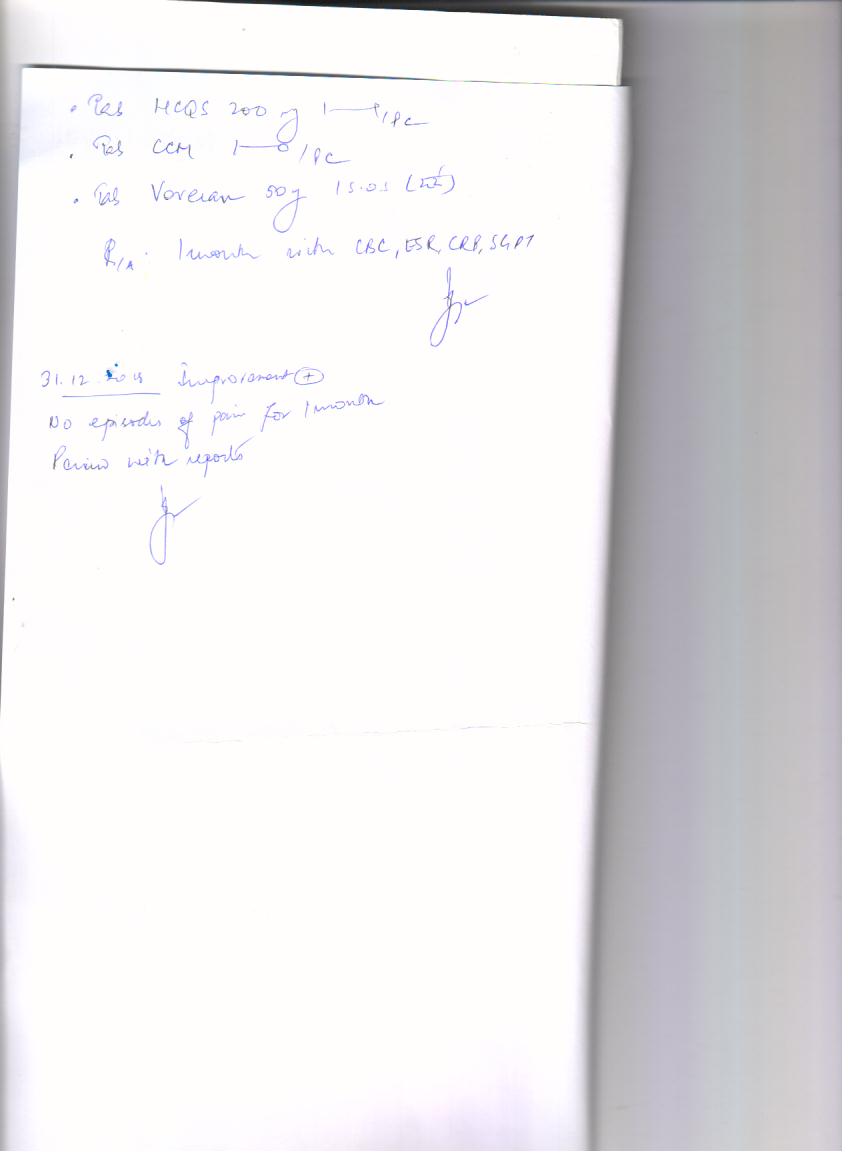 . Tab HCQS 200 mg 1—1/PC
. Tab CCM 1—0/PC
. Tab Voveran 50mg 1 S.O.S
R/A. 1 month with CBC, ESR, CRP, SGPT
31.12. Improvement +
No episodes of pain for 1 month
Review with reports